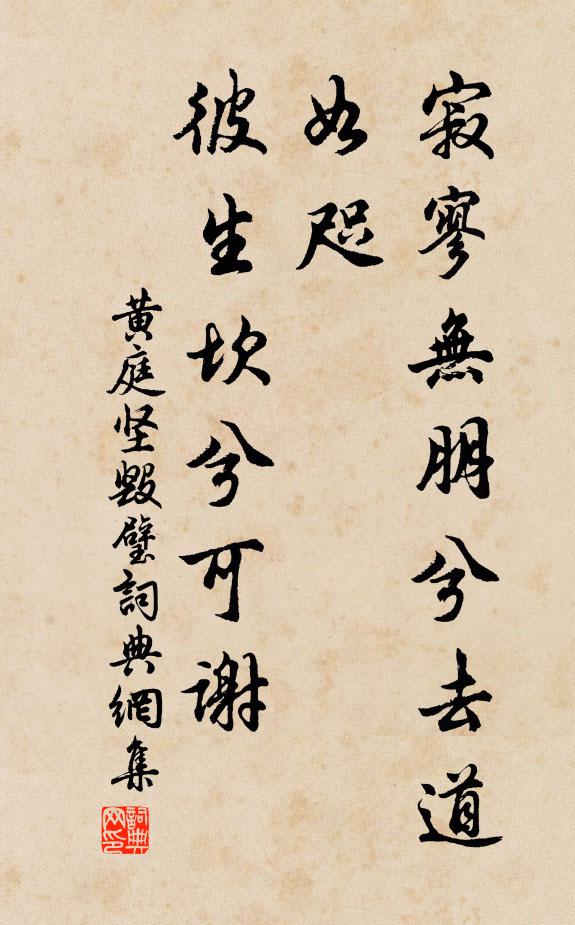 寂寥無朋兮去道
如咫
彼生坎兮可謝
黄庭坚毀璧詞典網集
詞典网印